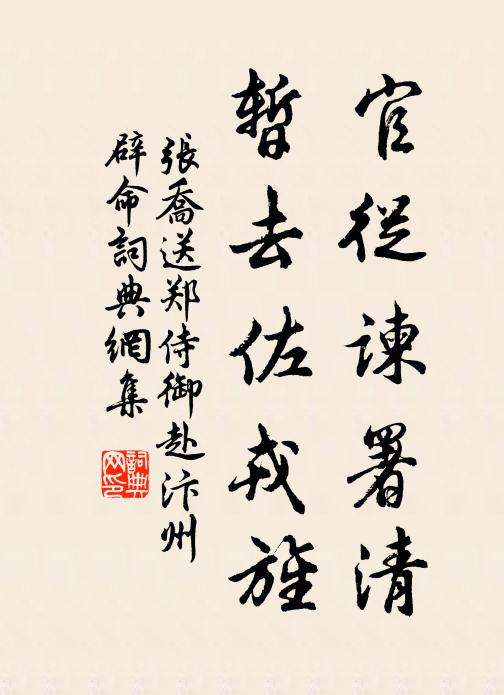 官從諫署清
暫去佐戎旌
張喬送郑侍御赴汴州
辟命詞典網集
詞典網印